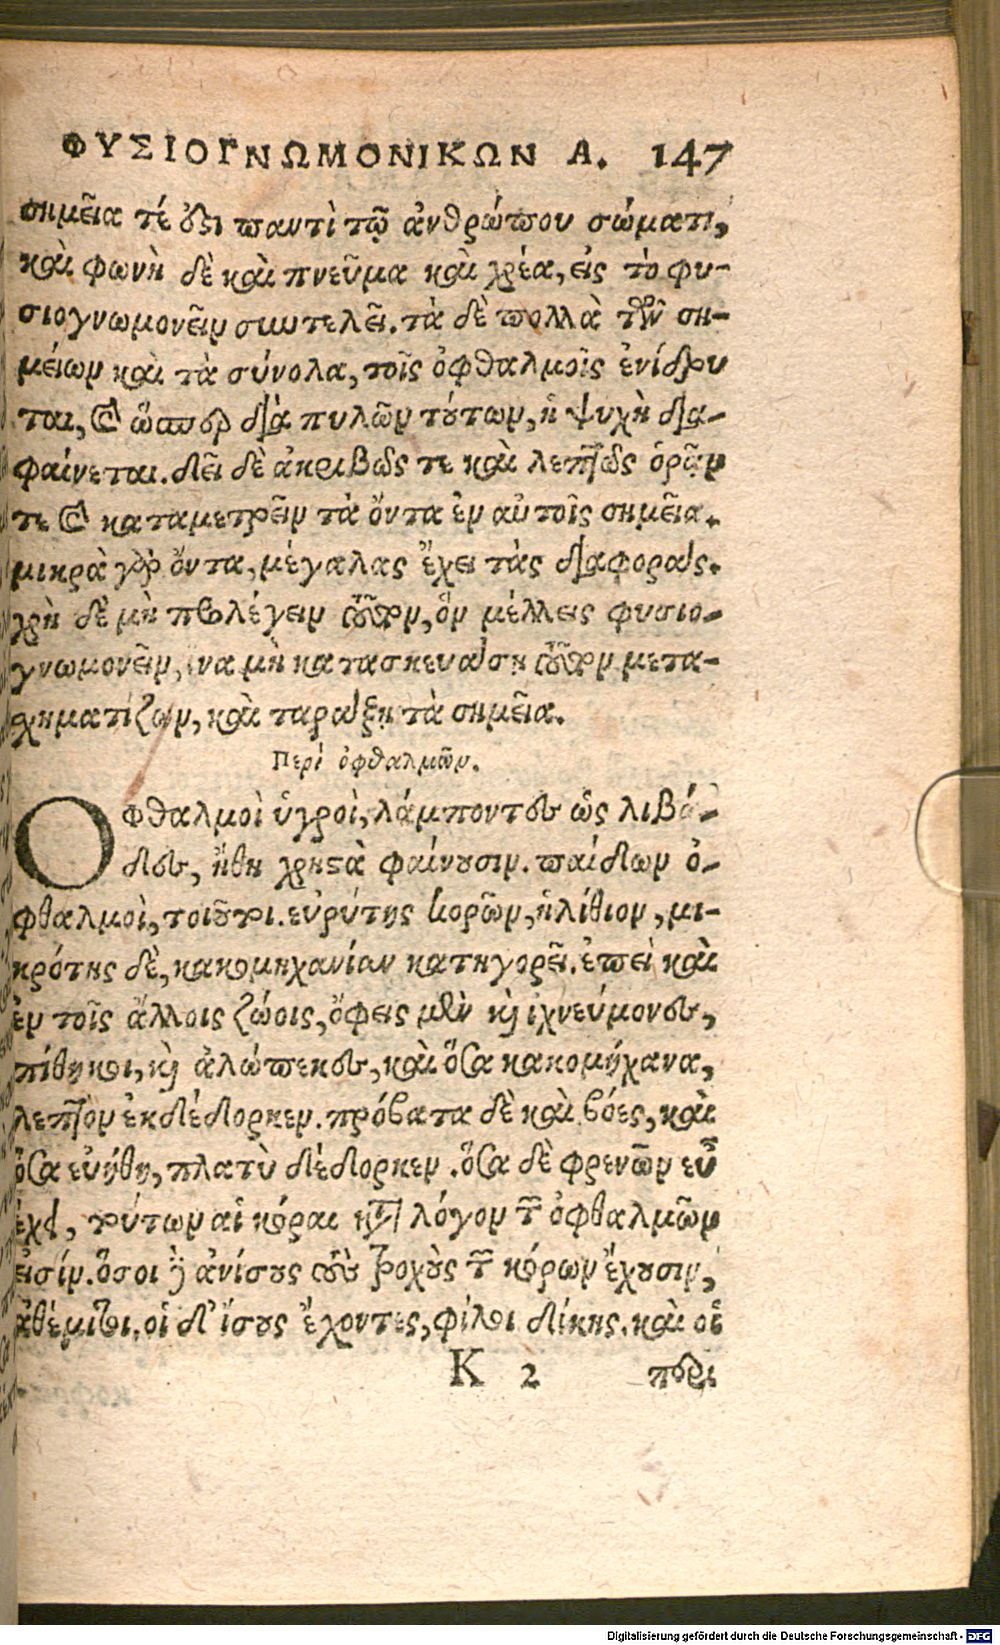 ΦΥΣΙΟΓΝΩΜΟΝΙΚΩΝ Α. 147
σημεῖα τέ ἐστι παντὶ τῷ ἀνθρώπου σώματι,
καὶ φωνὴ δὲ καὶ πνεῦμα καὶ χρέα, εἰς τὸ φυ-
σιογνωμονεῖν συντελεῖ. τὰ δὲ πολλὰ τῶν ση-
μείων καὶ τὰ σύνολα, τοῖς ὀφθαλμοῖς ἐνίδρυ
ται, καὶ ὥσπερ διὰ πυλῶν τούτων, ἡ ψυχὴ δια-
φαίνεται. δεῖ δὲ ἀκριβῶς τε καὶ λεπτῶς ὁρᾷν
τε καὶ καταμετρεῖν τὰ ὄντα ἐν αὐτοῖς σημεῖα.
μικρὰ γὰρ ὄντα, μέγαλας ἔχει τὰς διαφοράς.
χρὴ δὲ μὴ προλέγειν τοῦτον, ὃν μέλλεις φυσιο-
γνωμονεῖν, ἵνα μὴ κατασκευάσῃ τοῦτον μετα-
χηματίζων, καὶ ταράξῃ τὰ σημεῖα.
Περὶ ὀφθαλμῶν.
Οφθαλμοὶ ὑγροὶ, λάμποντες ὡς λιβά-
δες, ἤθη χρηστὰ φαίνουσιν. παίδων ὀ-
φθαλμοὶ, τοιοῦτοι. εὐρύτης κορῶν, ἠλίθιον, μι-
κρότης δὲ, κακομηχανίαν κατηγορεῖ. ἐπεὶ καὶ
ἐν τοῖς ἄλλοις ζώοις, ὄφεις μὲν καὶ ἰχνεύμονες,
πίθηκοι, καὶ ἀλώπεκες, καὶ ὅσα κακομήχανα,
λεπτὸν ἐκδέδορκεν. πρόβατα δὲ καὶ βόες, καὶ
ὅσα εὐήθη, πλατὺ δέδορκεν. ὅσα δὲ φρενῶν εὖ
ἔχει, τούτων αἱ κόραι κατὰ λόγον τῶν ὀφθαλμῶν
εἰσίν. ὅσοι δὲ ἀνίσους τοὺς τροχοὺς τῶν κόρων ἔχουσιν,
ἀθέμιτοι. οἱ δ' ἴσους ἔχοντες, φίλοι δίκης. καὶ οἱ
K 2 περι
Digitalisierung gefördert durch die Deutsche Forschungsgemeinschaft - DFG